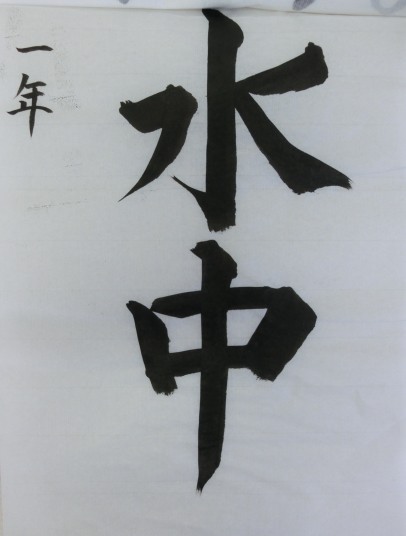 水中
一年